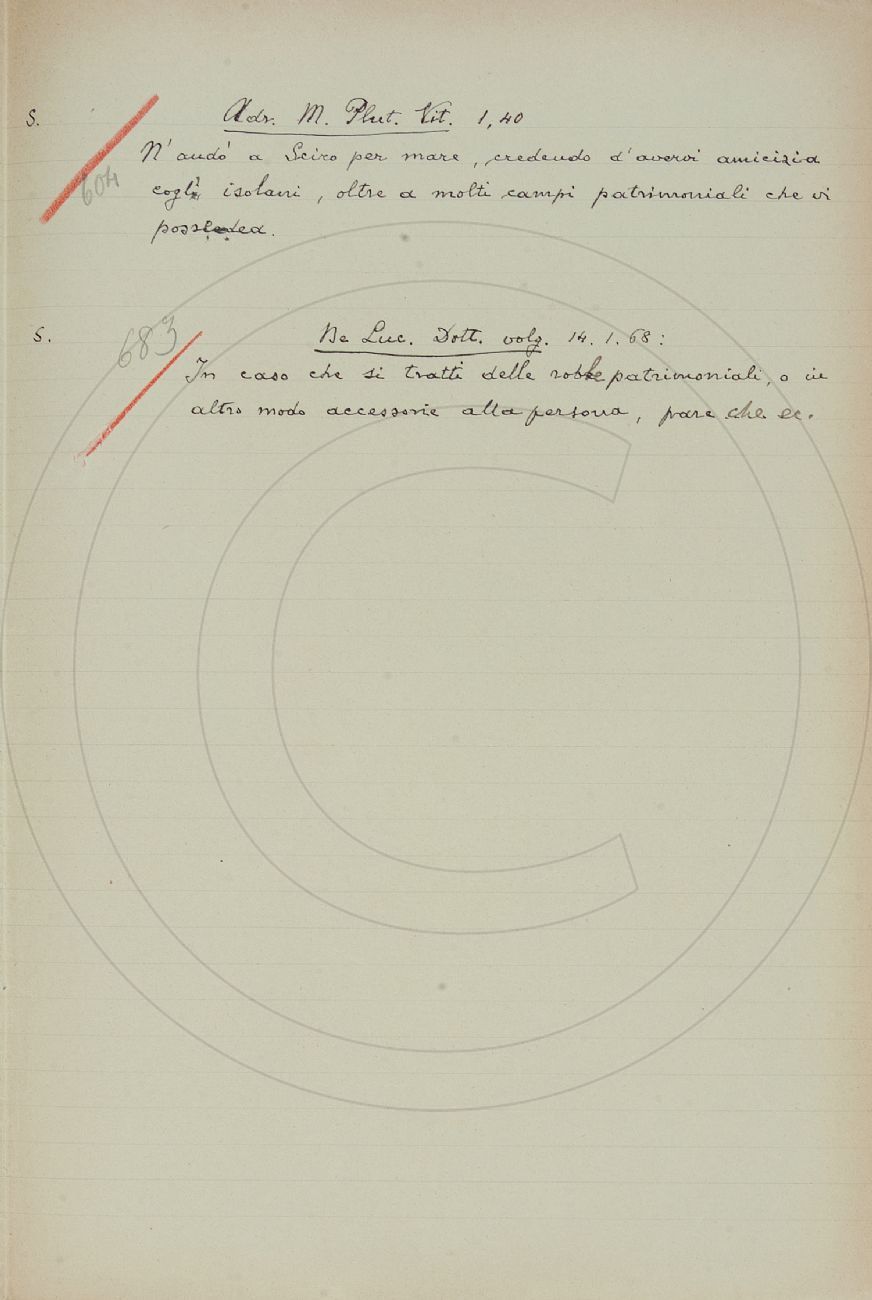 S. Adr. M. Plut. Vit. 1, 40
604
N'andò a Sciro per mare, credendo d'avervi amicizia
cogl'isolani, oltre a molti campi patrimoniali che vi
possedea.
S. De Luc. Dott. volg. 14. 1. 68:
683
In caso che si tratti delle robbe patrimoniali, o in
altro modo accessorie alla persona, pare che ec.